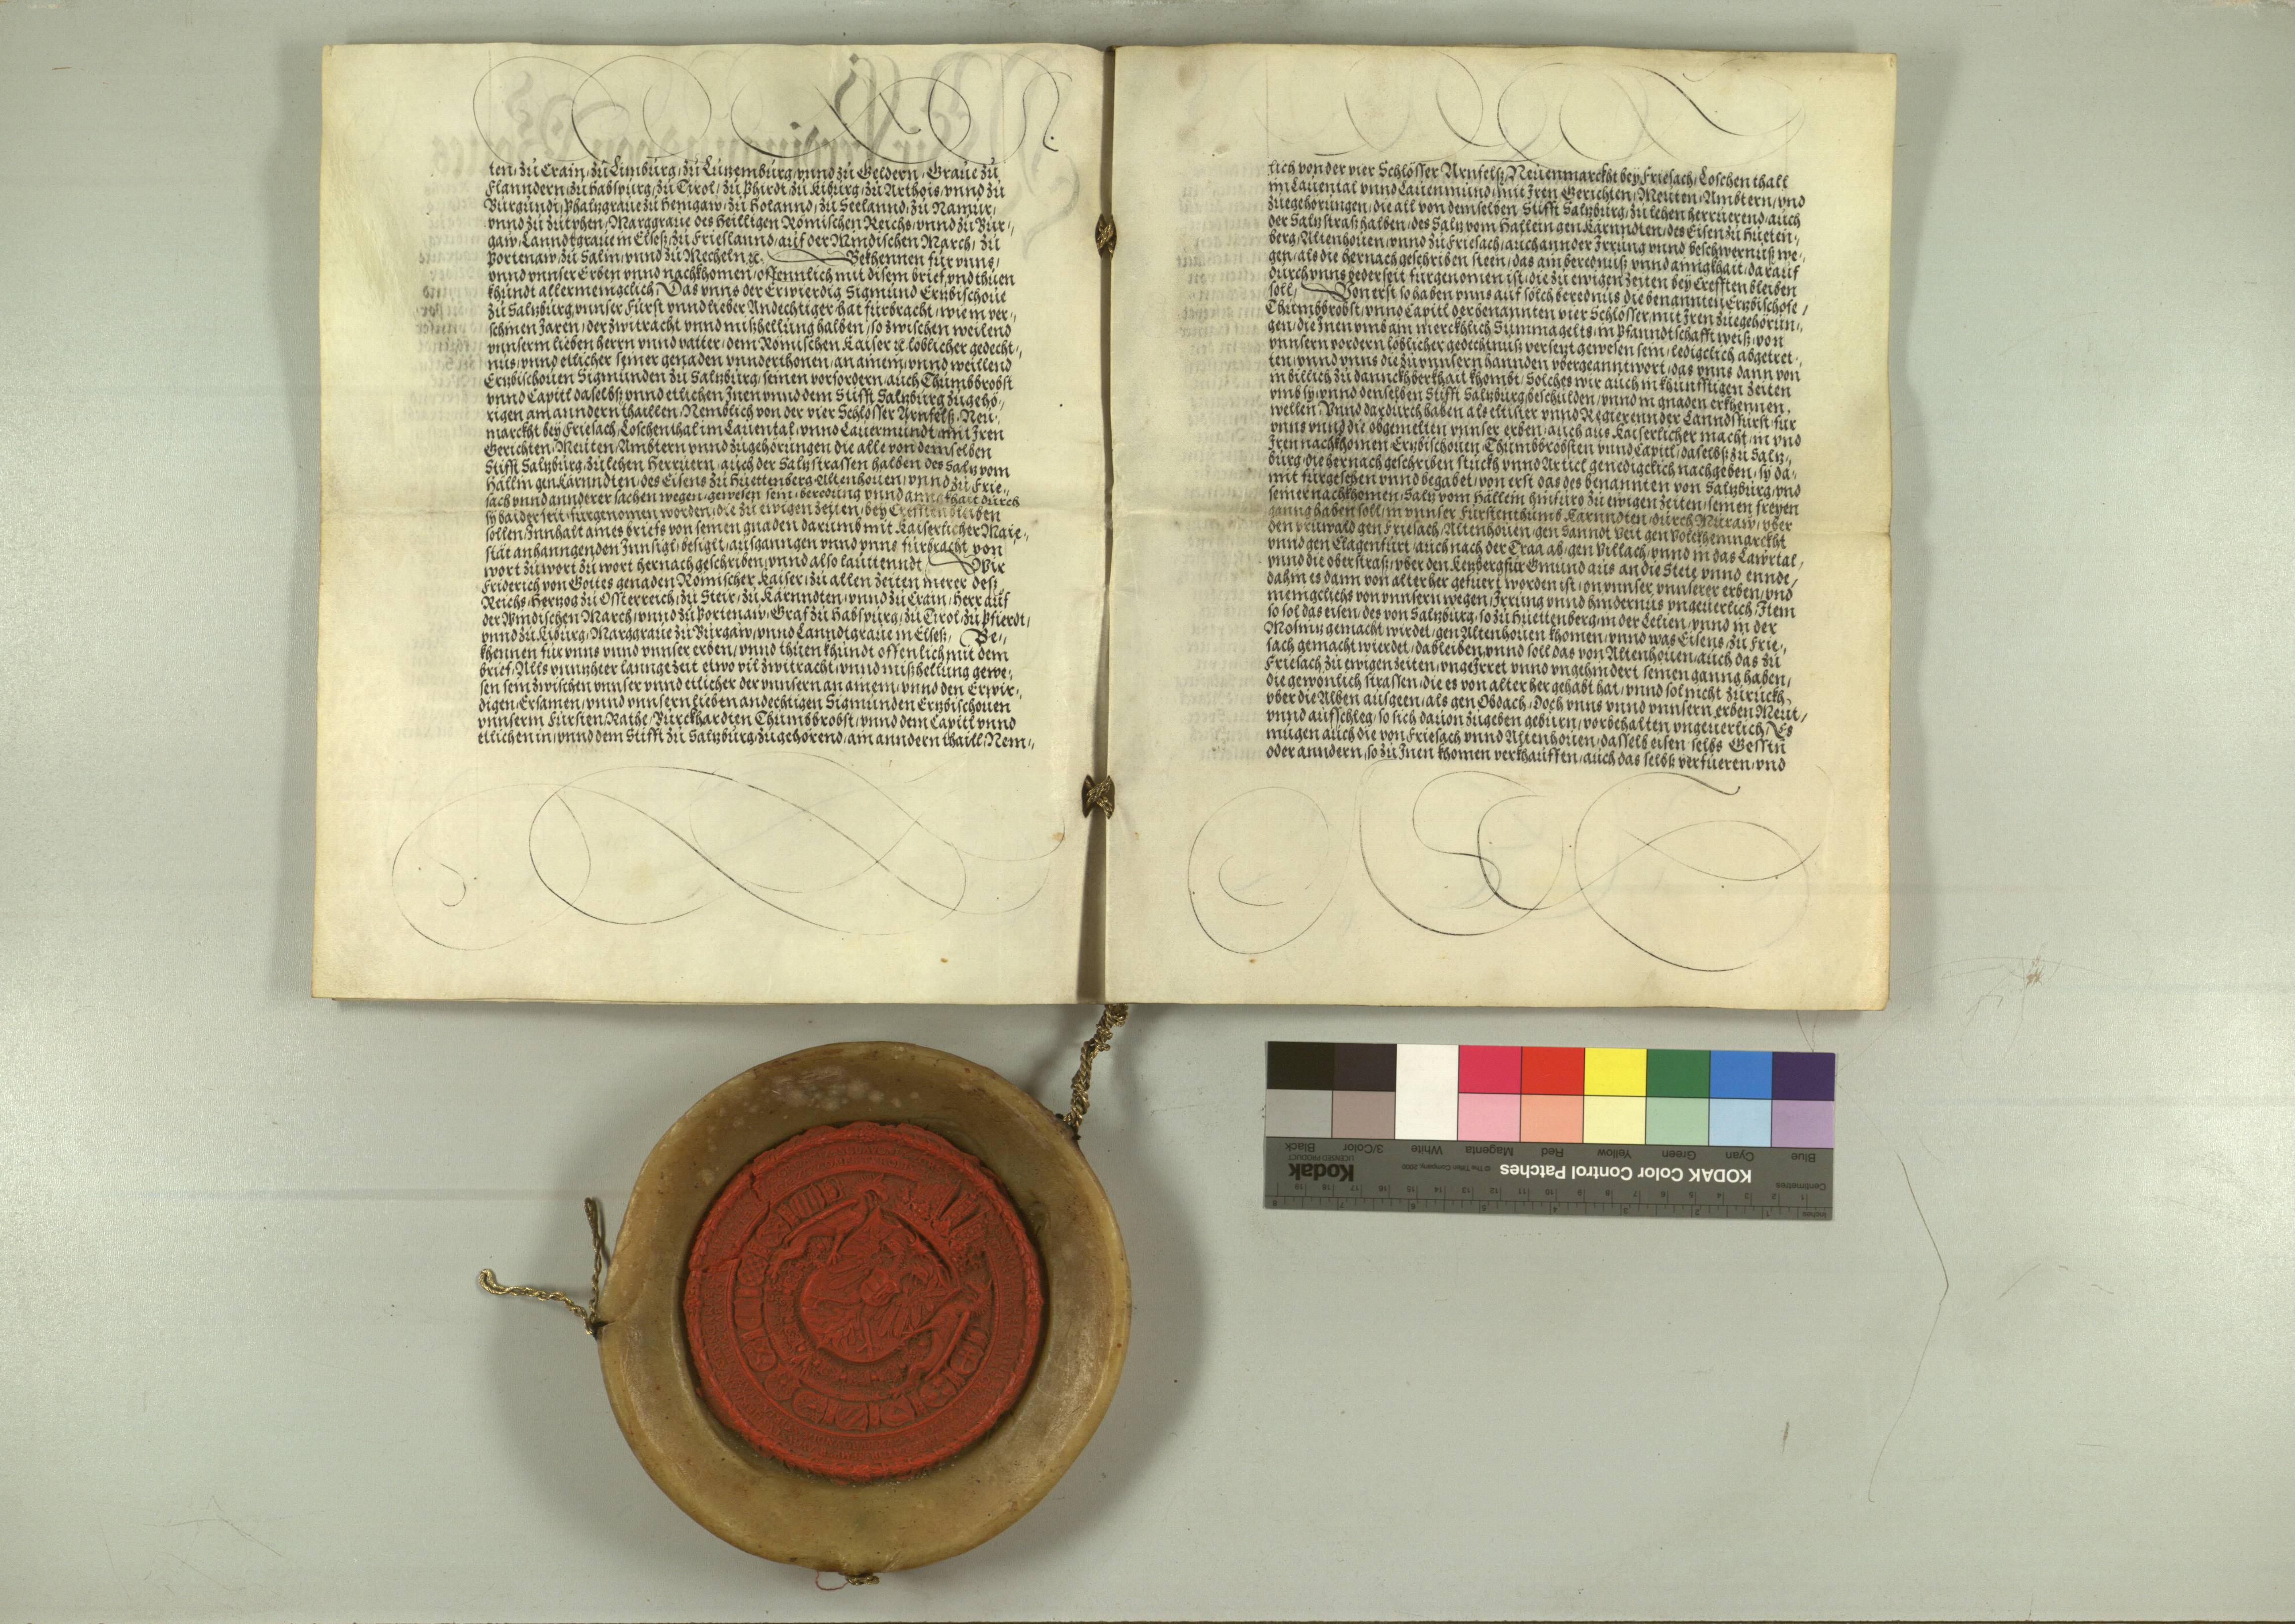 ten, zu Crain, zu Limburg, zu Lutzemburg, vnnd zu Geldern, Graue zu
Flanndern, zu Habspurg, zu Tirol, zu Phirdt, zu Kiburg, zu Arthois, vnnd zu
Burgundi, Phaltzgraue zu Henigaw, zu Holannd, zu Seelannd, zu Namur,
vnnd zu Zutphen, Marggraue des Heilligen Römischen Reichs, vnnd zu Bur,,
gaw, Lanndtgraue in Elseß, zu Frieslannd, auf der Windischen March, zu
Portenaw, zu Salin, vnnd zu Mecheln ꝛc. Bekhennen für vnns,
vnnd vnnser Erben vnnd nachkhomen, offennlich mit disem brief, vnd thuen
khundt allermenigclich, Das vnns der Erwierdig Sigmund Ertzbischoue
zu Saltzburg, vnnser Fürst vnnd lieber Andechtiger, hat fürbracht, wie in ver,,
schinen Jaren, der zwitracht vnnd mißhellung halben, so zwischen weilend
vnnserm lieben herrn vnnd vatter, dem Römischen Kaiser ꝛc löblicher gedecht,,
nus, vnnd etlicher seiner genaden vnnderthonen, an ainem, vnnd weillend
Ertzbischouen Sigmunden zu Saltzburg, seinen vorfordern, auch Thumbbrobst
vnnd Capitl daselbst, vnnd etlichen Jnen vnnd dem Stifft Saltzburg zugehö,,
rigen am anndern thaillen, Nemblich von der vier Schlösser Arnfelß, Neu,,
marckht bey Friesach, Loschenthal im Lauental, vnnd Lauermundt, mit Jren
Gerichten, Meutten, Ambtern vnnd zugehörungen die alle von demselben
Stifft Saltzburg, zu lehen Herruern, auch der Saltzstrassen halben des Saltz vom
Hällin gen Kärnndten, des Eisens zu Huettenberg, Altenhouen, vnnd zu Frie,,
sach vnnd annderer sachen wegen, gewesen sein, beredung vnnd ainigkhait durch
sy baiderseit, fürgenomen worden, die zu ewigen zeiten, bey Crefften bleiben
sollen, Jnnhalt aines briefs von seinen gnaden darumb mit Kaiserlicher Maie,,
stät anhanngenden Jnnsigl, besiglt, aufganngen vnnd vnns fürbracht von
wort zu wort zu wort hernach geschriben, vnnd also lauttenndt, Wir
Friderich von Gottes genaden Römischer Kaiser, zu allen zeiten merer des
Reichs, Hertzog zu Össterreich, zu Steir, zu Kärnndten, vnnd zu Crain, Herr auf
der Windischen March, vnnd zu Portenaw, Graf zu Habspurg, zu Tirol, zu Pfierdt,
vnnd zu Kiburg, Marggraue zu Burgaw, vnnd Lanndtgraue in Elseß, Be,,
khennen für vnns vnnd vnnser erben, vnnd thuen khundt offenlich mit dem
brief, Alls vnnzheer lannge zeit etwo vil zwitracht, vnnd mißhellung gewe,,
sen sein zwischen vnnser vnnd etlicher der vnnsern an ainem, vnnd den Erwir,,
digen, Ersamen, vnnd vnnsern lieben andechtigen Sigmunden Ertzbischouen
vnnserm Fürsten, Rathe, Burckhardten Thumbbrobst, vnnd dem Capitl vnnd
etlichen in, vnnd dem Stifft zu Saltzburg, zugehörend, am anndern thaill, Nem,,
lich von der vier Schlösser Arnfelß, Neuenmarckht bey Friesach, Loschenthall
im Lauental vnnd Lauenmund, mit Jren Gerichten, Meuten, Ambtern, vnd
zuegehörungen, die all von demselben Stifft Saltzburg, zu lehen herruerend, auch
der Saltzstraß halben, des Saltz vom Hällein gen Kärnndten, des Eisen zu Hüeten,,
berg, Altenhouen, vnnd zu Friesach, auch ann der Jrrung vnnd beschwernuß we,,
gen, als die hernach geschriben steen, das ain berednuß vnnd ainigkhait, darauf
durch vnns yederseit fürgenomen ist, die zu ewigen zeiten bey Crefften bleiben
soll, Von erst so haben vnns auf solch berednus die benannten Ertzbischofe,
Thumbbrobst, vnnd Capitl der benannten vier Schlösser, mit Jren zuegehörun,,
gen, die Jnen vmb ain merckhlich Summa gelts, in Pfanndtschafft weiß, von
vnnsern vordern löblicher gedechtnuß versetzt gewesen sein, ledigclich abgetret,,
ten, vnnd vnns die zu vnnsern hannden vbergeanntwort, das vnns dann von
in billich zu dannckhberkhait khombt, Solches wir auch in khunfftigen zeiten
vmb sy, vnnd denselben Stifft Saltzburg, beschulden, vnnd in gnaden erkhennen,
wellen, Vnnd dardurch haben als eltister vnnd Regierennder Lanndsfürst, für
vnns vnnd die obgemelten vnnser erben, auch aus Kaiserlicher macht, in vnd
Jren nachkhomen, Ertzbischouen, Thumbbrobsten vnnd Capitl, daselbst zu Saltz,,
burg, die hernach geschriben stuckh vnnd Articl genedigclich nachgeben, sy da,,
mit fürgesehen vnnd begabet, von erst das des benannten von Saltzburg, vnd
seiner nachkhomen, Saltz vom Hällein hinfüro zu ewigen zeiten, seinen freyen
ganng haben soll, in vnnser Fürstenthumb Kärnndten, durch Muraw, vber
den Priwald gen Friesach, Altenhouen, gen Sannd Veit gen Volckhenmarckht
vnnd gen Clagenfurt, auch nach der Traa ab, gen Villach, vnnd in das Lawrtal,
vnnd die oberstraß, vber den Ketzberg für Gmund aus an die Stete vnnd ennde,
dahin es dann von alter her gefuert worden ist, on vnnser, vnnserer erben, vnd
menigclichs von vnnsern wegen, Jrrung vnnd hindernus vngeuerlich, Jtem
so sol das eisen, des von Saltzburg, so zu Huettenberg, in der Lelien, vnnd in der
Mosnitz gemacht wirdet, gen Altenhouen khomen, vnnd was Eisens, zu Frie,,
sach gemacht wierdet, dableiben, vnnd soll das von Altenhouen, auch das zu
Friesach zu ewigen zeiten, vngeJrret vnnd vngehindert seinen ganng haben,
die gewönlich strassen, die es von alter her gehabt hat, vnnd sol nicht zuruckh,
vber die Alben ausgeen, als gen Obdach, Doch vnns vnnd vnnsern erben Meut,
vnnd aufschleg, so sich dauon zugeben geburn, vorbehalten vngeuerlich, Es
mügen auch die von Friesach vnnd Altenhouen, dasselb eisen selbs Gessin
oder anndern, so zu Jnen khomen verkhauffen, auch das selbst verfueren, vnd
KODAK Color Control Patches
Kodak
LICENSED PRODUCT
© The Tiffen Company, 2000
Blue Cyan Green Yellow Red Magenta White 3/Color Black
Centimetres
Inches